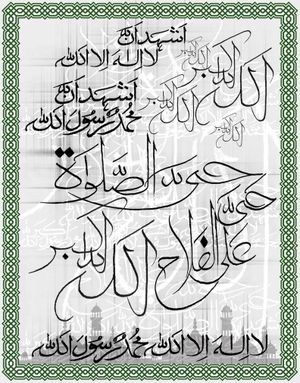 الله اكبر
الله اكبر
الله اكبر
الله اكبر
اشهد ان
لا اله الا الله
اشهد ان
محمد رسول الله
حی علی الصلواة
حی علی
علی الفلاح
الله اكبر
لا اله الا الله محمد رسول الله